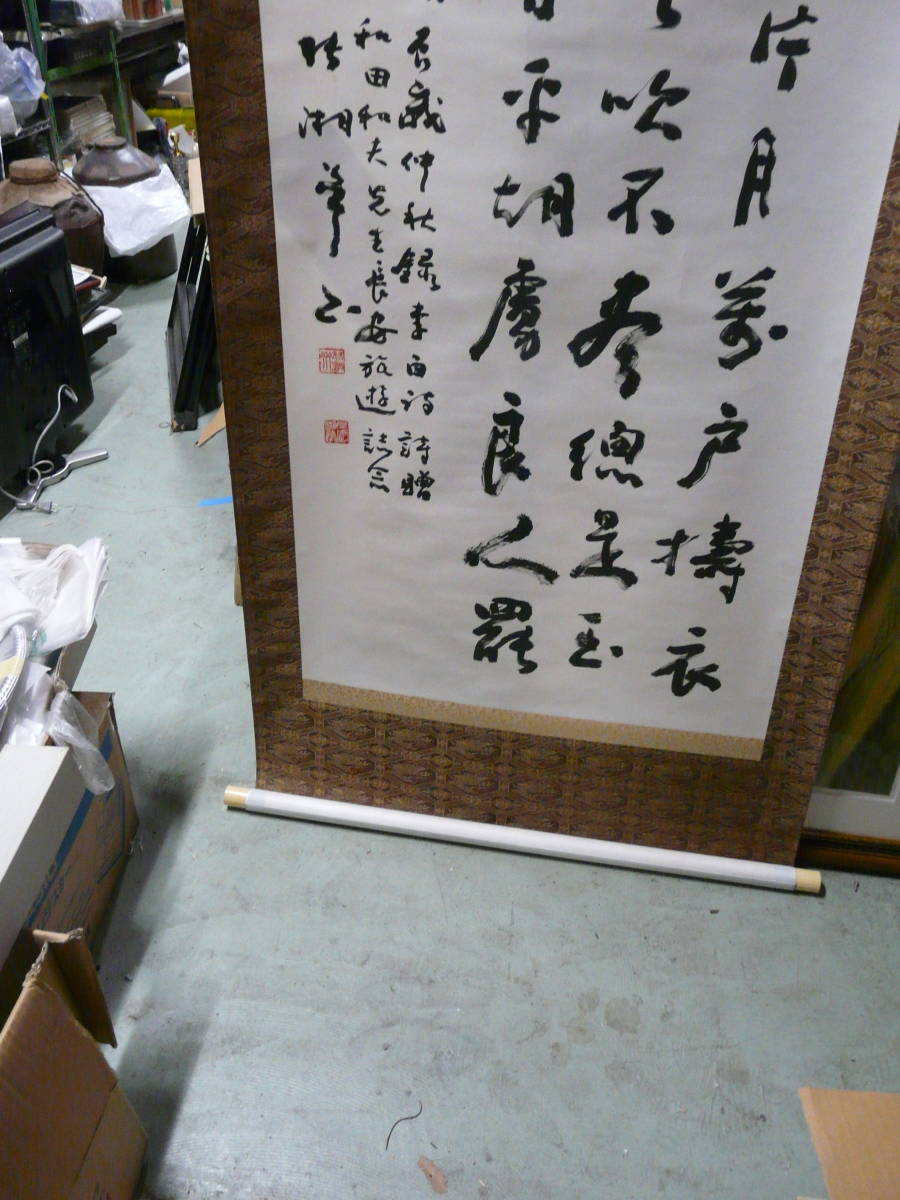 片月萬戶擣衣
吹不盡總是玉
日平胡虜良人罷
辰歲仲秋錄李白詩 詩贈
和田和夫先生長安旅遊誌念
張湘 书